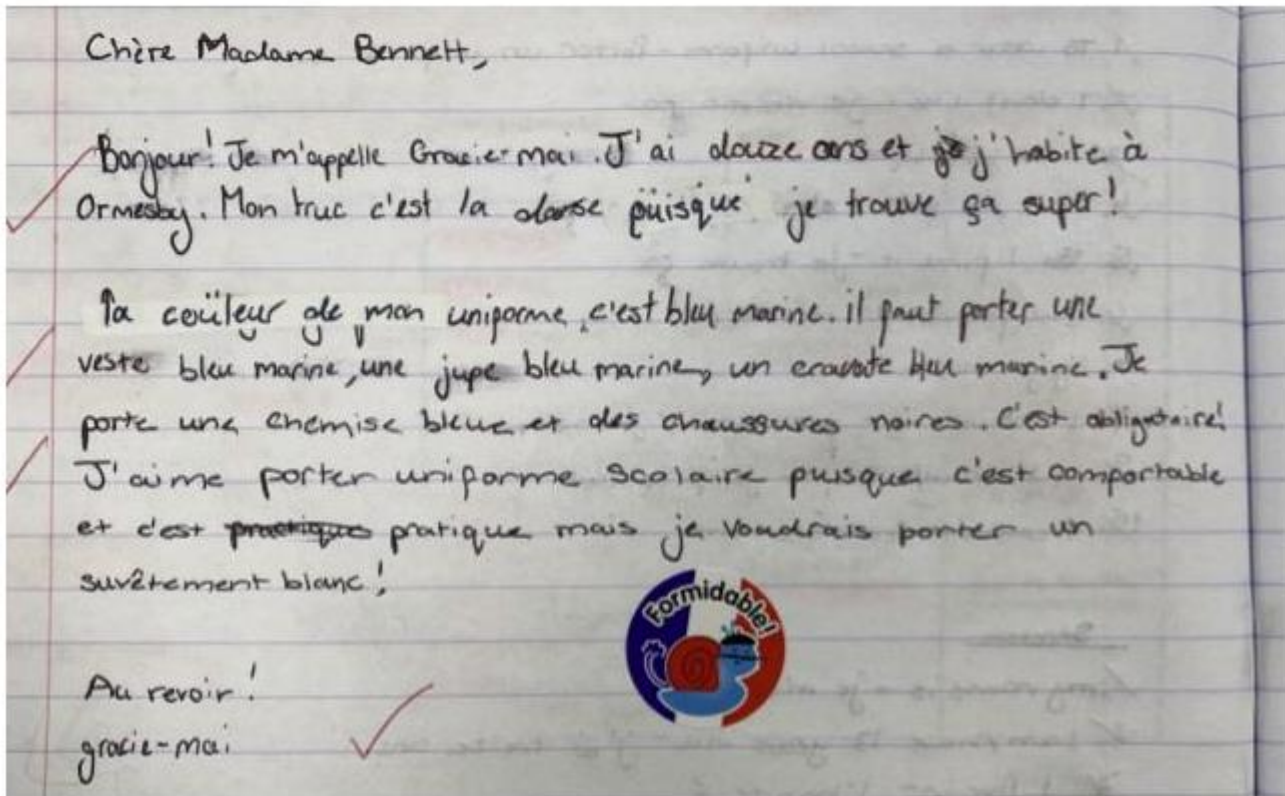 Chère Madame Bennett,
Bonjour! Je m'appelle Gracie-mai. J'ai douze ans et j'habite à
Ormesby. Mon truc c'est la danse püisque je trouve ça super!
La coüleur de mon uniforme, c'est bleu marine. il faut porter une
veste bleu marine, une jupe bleu marine, un cravate bleu marine. Je
porte une chemise bleue et des chaussures noires. C'est obligatoire!
J'aime porter uniforme scolaire puisque c'est comfortable
et c'est pratique mais je voudrais porter un
suvêtement blanc!
Formidable!
Au revoir!
gracie-mai